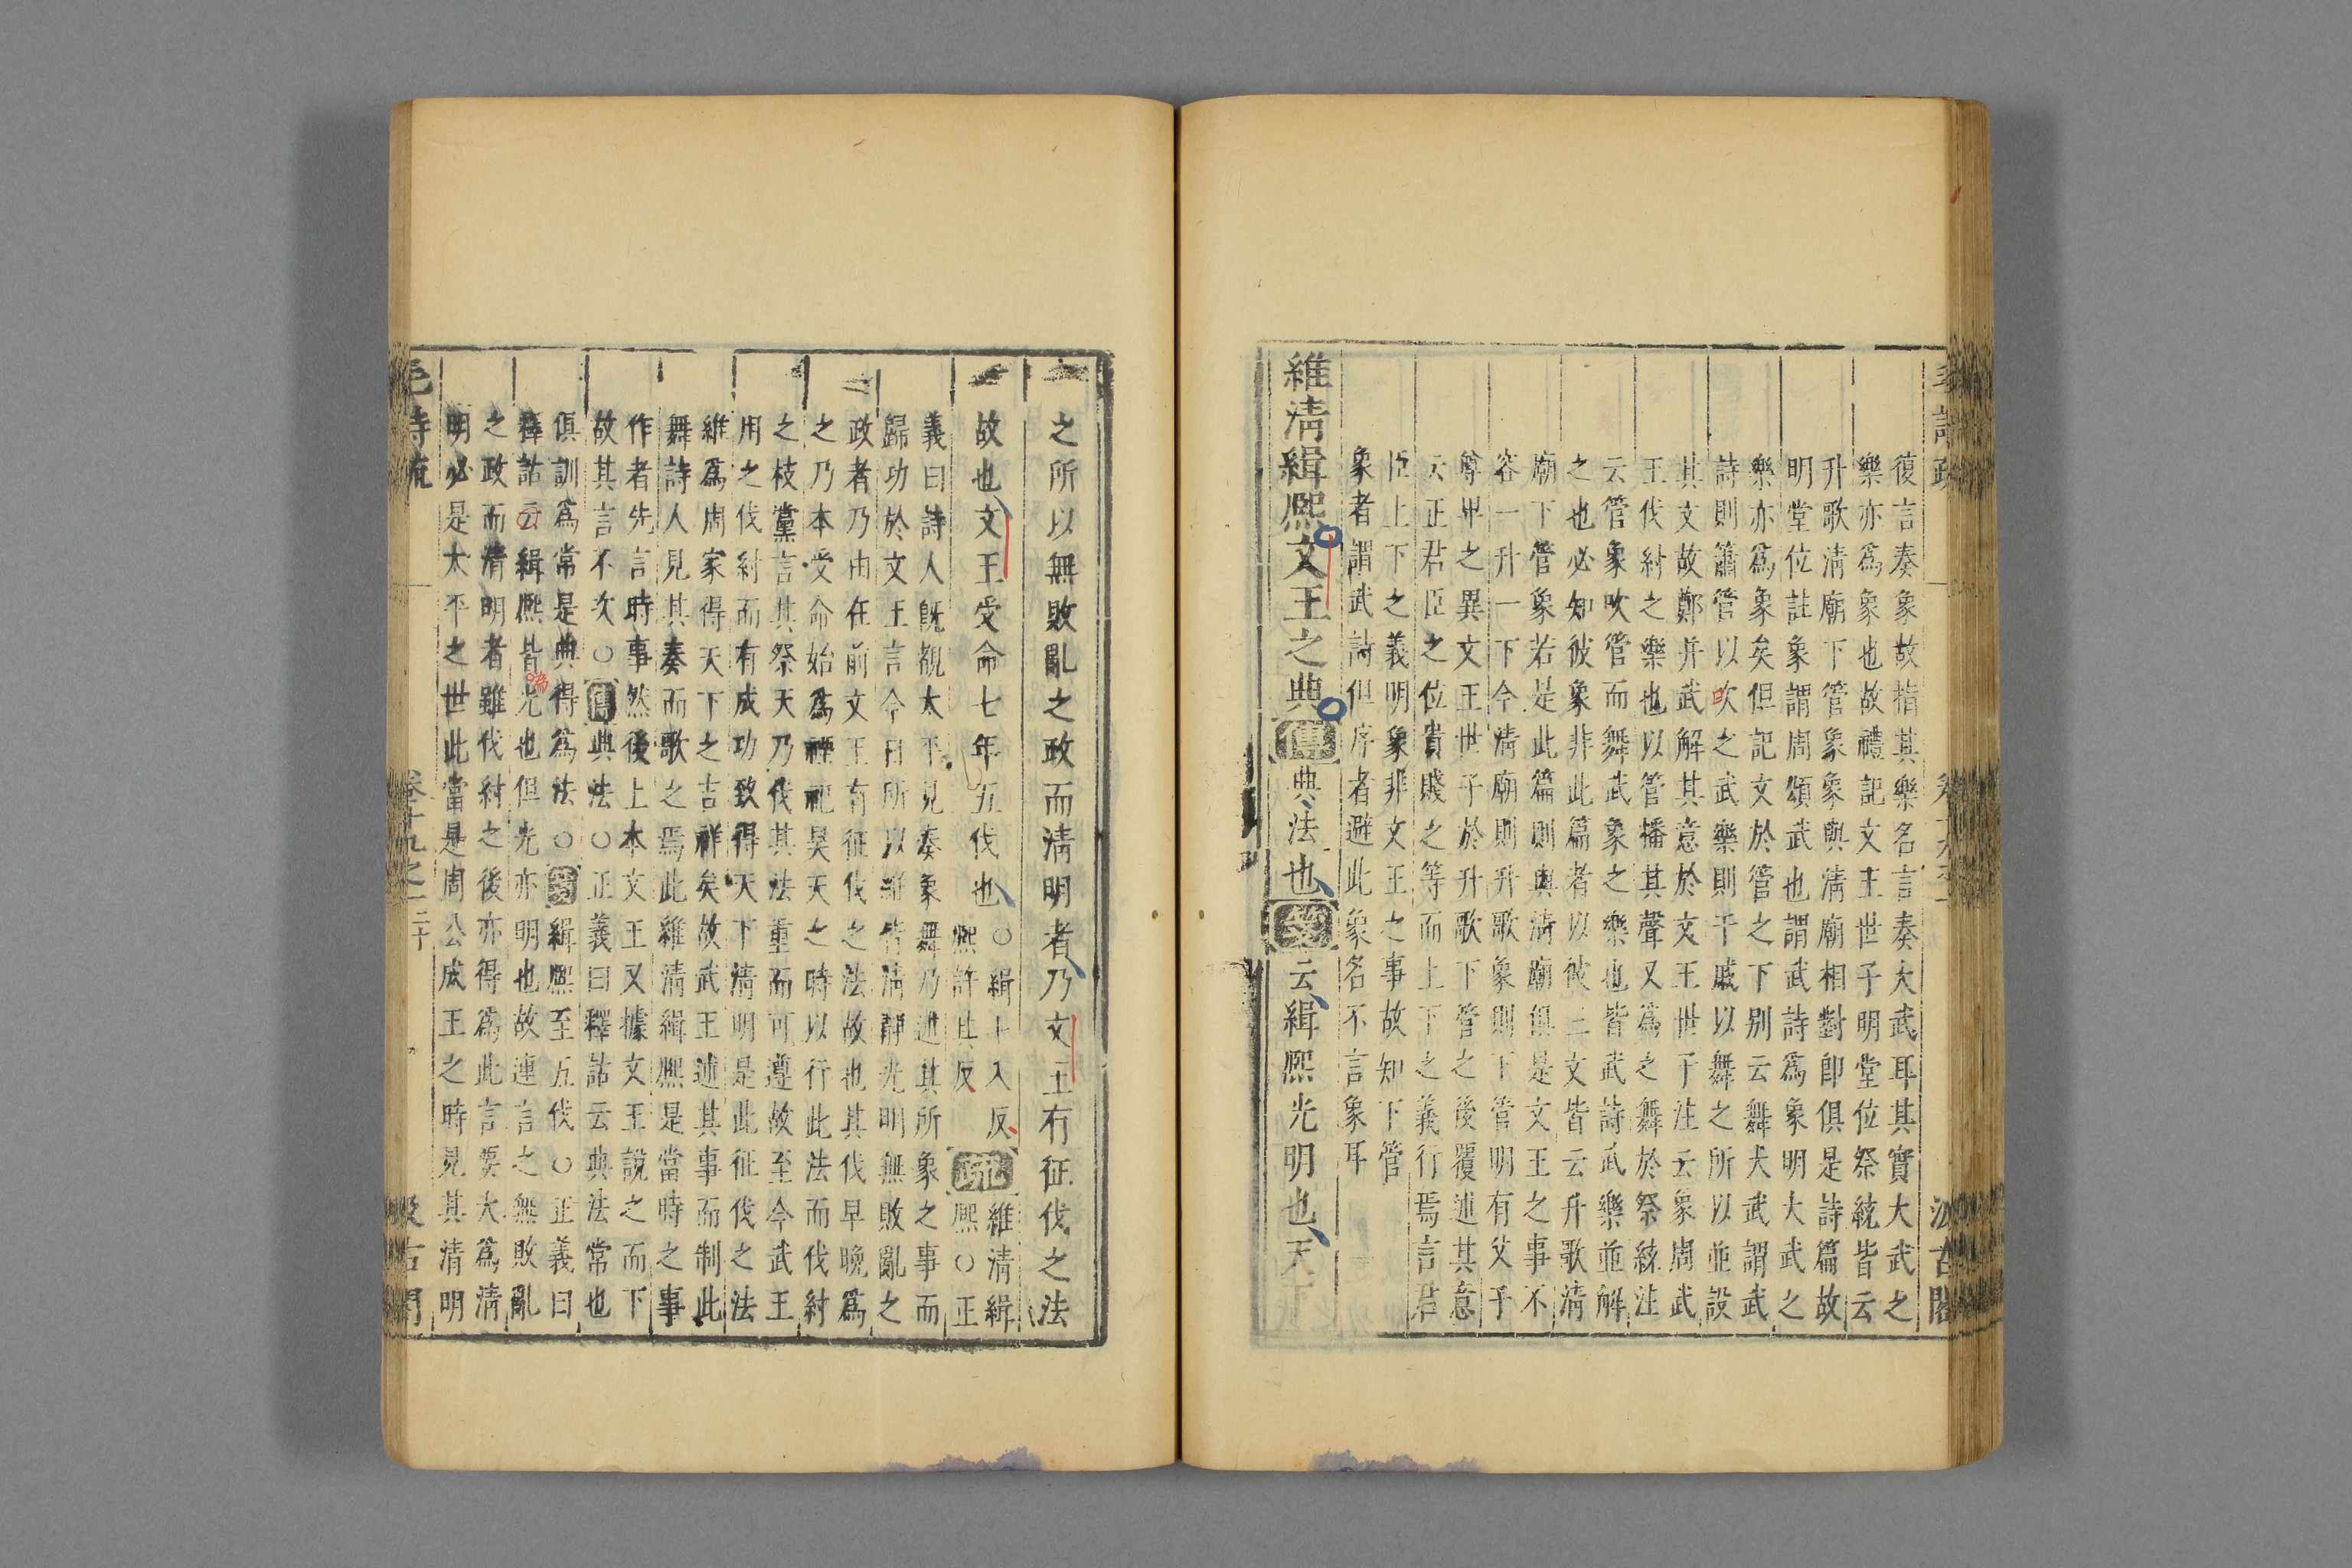 復言奏象故指其樂名言奏大武耳其實大武之
樂亦爲象也故禮記文王世子明堂位祭統皆云
升歌淸廟下管象象與淸廟相對卽俱是詩篇故
明堂位註象謂周頌武也謂武詩爲象明大武之
樂亦爲象矣但記文於管之下别云舞大武謂武
詩則簫管以吹之武樂則干戚以舞之所以並設
其文故鄭并武解其意於文王世子注云象周武
王伐紂之樂也以管播其聲又爲之舞於祭統注
云管象吹管而舞武象之樂也皆武詩武樂並解
之也必知彼象非此篇者以彼三文皆云升歌淸
廟下管象若是此篇則與淸廟俱是文王之事不
容一升一下今淸廟則升歌象則下管明有父子
尊卑之異文王世子於升歌下管之後覆述其意
云正君臣之位貴賤之等而上下之義行焉言君
臣上下之義明象非文王之事故知下管
象者謂武詩但序者避此象名不言象耳
維淸緝熙文王之典傳典法也箋云緝熙光明也天下
之所以無敗亂之政而淸明者乃文王有征伐之法
故也文王受命七年五伐也
○緝七入反
熙許其反
疏
維淸緝
熙○正
義曰詩人旣覩太平見奏象舞乃述其所象之事而
歸功於文王言今日所以維皆淸靜光明無敗亂之
政者乃由在前文王有征伐之法故也其伐早晚爲
之乃本受命始爲禋祀昊天之時以行此法而伐紂
之枝黨言其祭天乃伐其法重而可遵故至今武王
用之伐紂而有成功致得天下淸明是此征伐之法
維爲周家得天下之吉祥矣故武王述其事而制此
舞詩人見其奏而歌之焉此維淸緝熙是當時之事
作者先言時事然後上本文王又據文王說之而下
故其言不次○傳典法○正義曰釋詁云典法常也
俱訓爲常是典得爲法○箋緝熙至五伐○正義曰
釋詁云緝熙皆光也但光亦明也故連言之無敗亂
之政而淸明者雖伐紂之後亦得爲此言要大爲淸
明必是太平之世此當是周公成王之時見其淸明